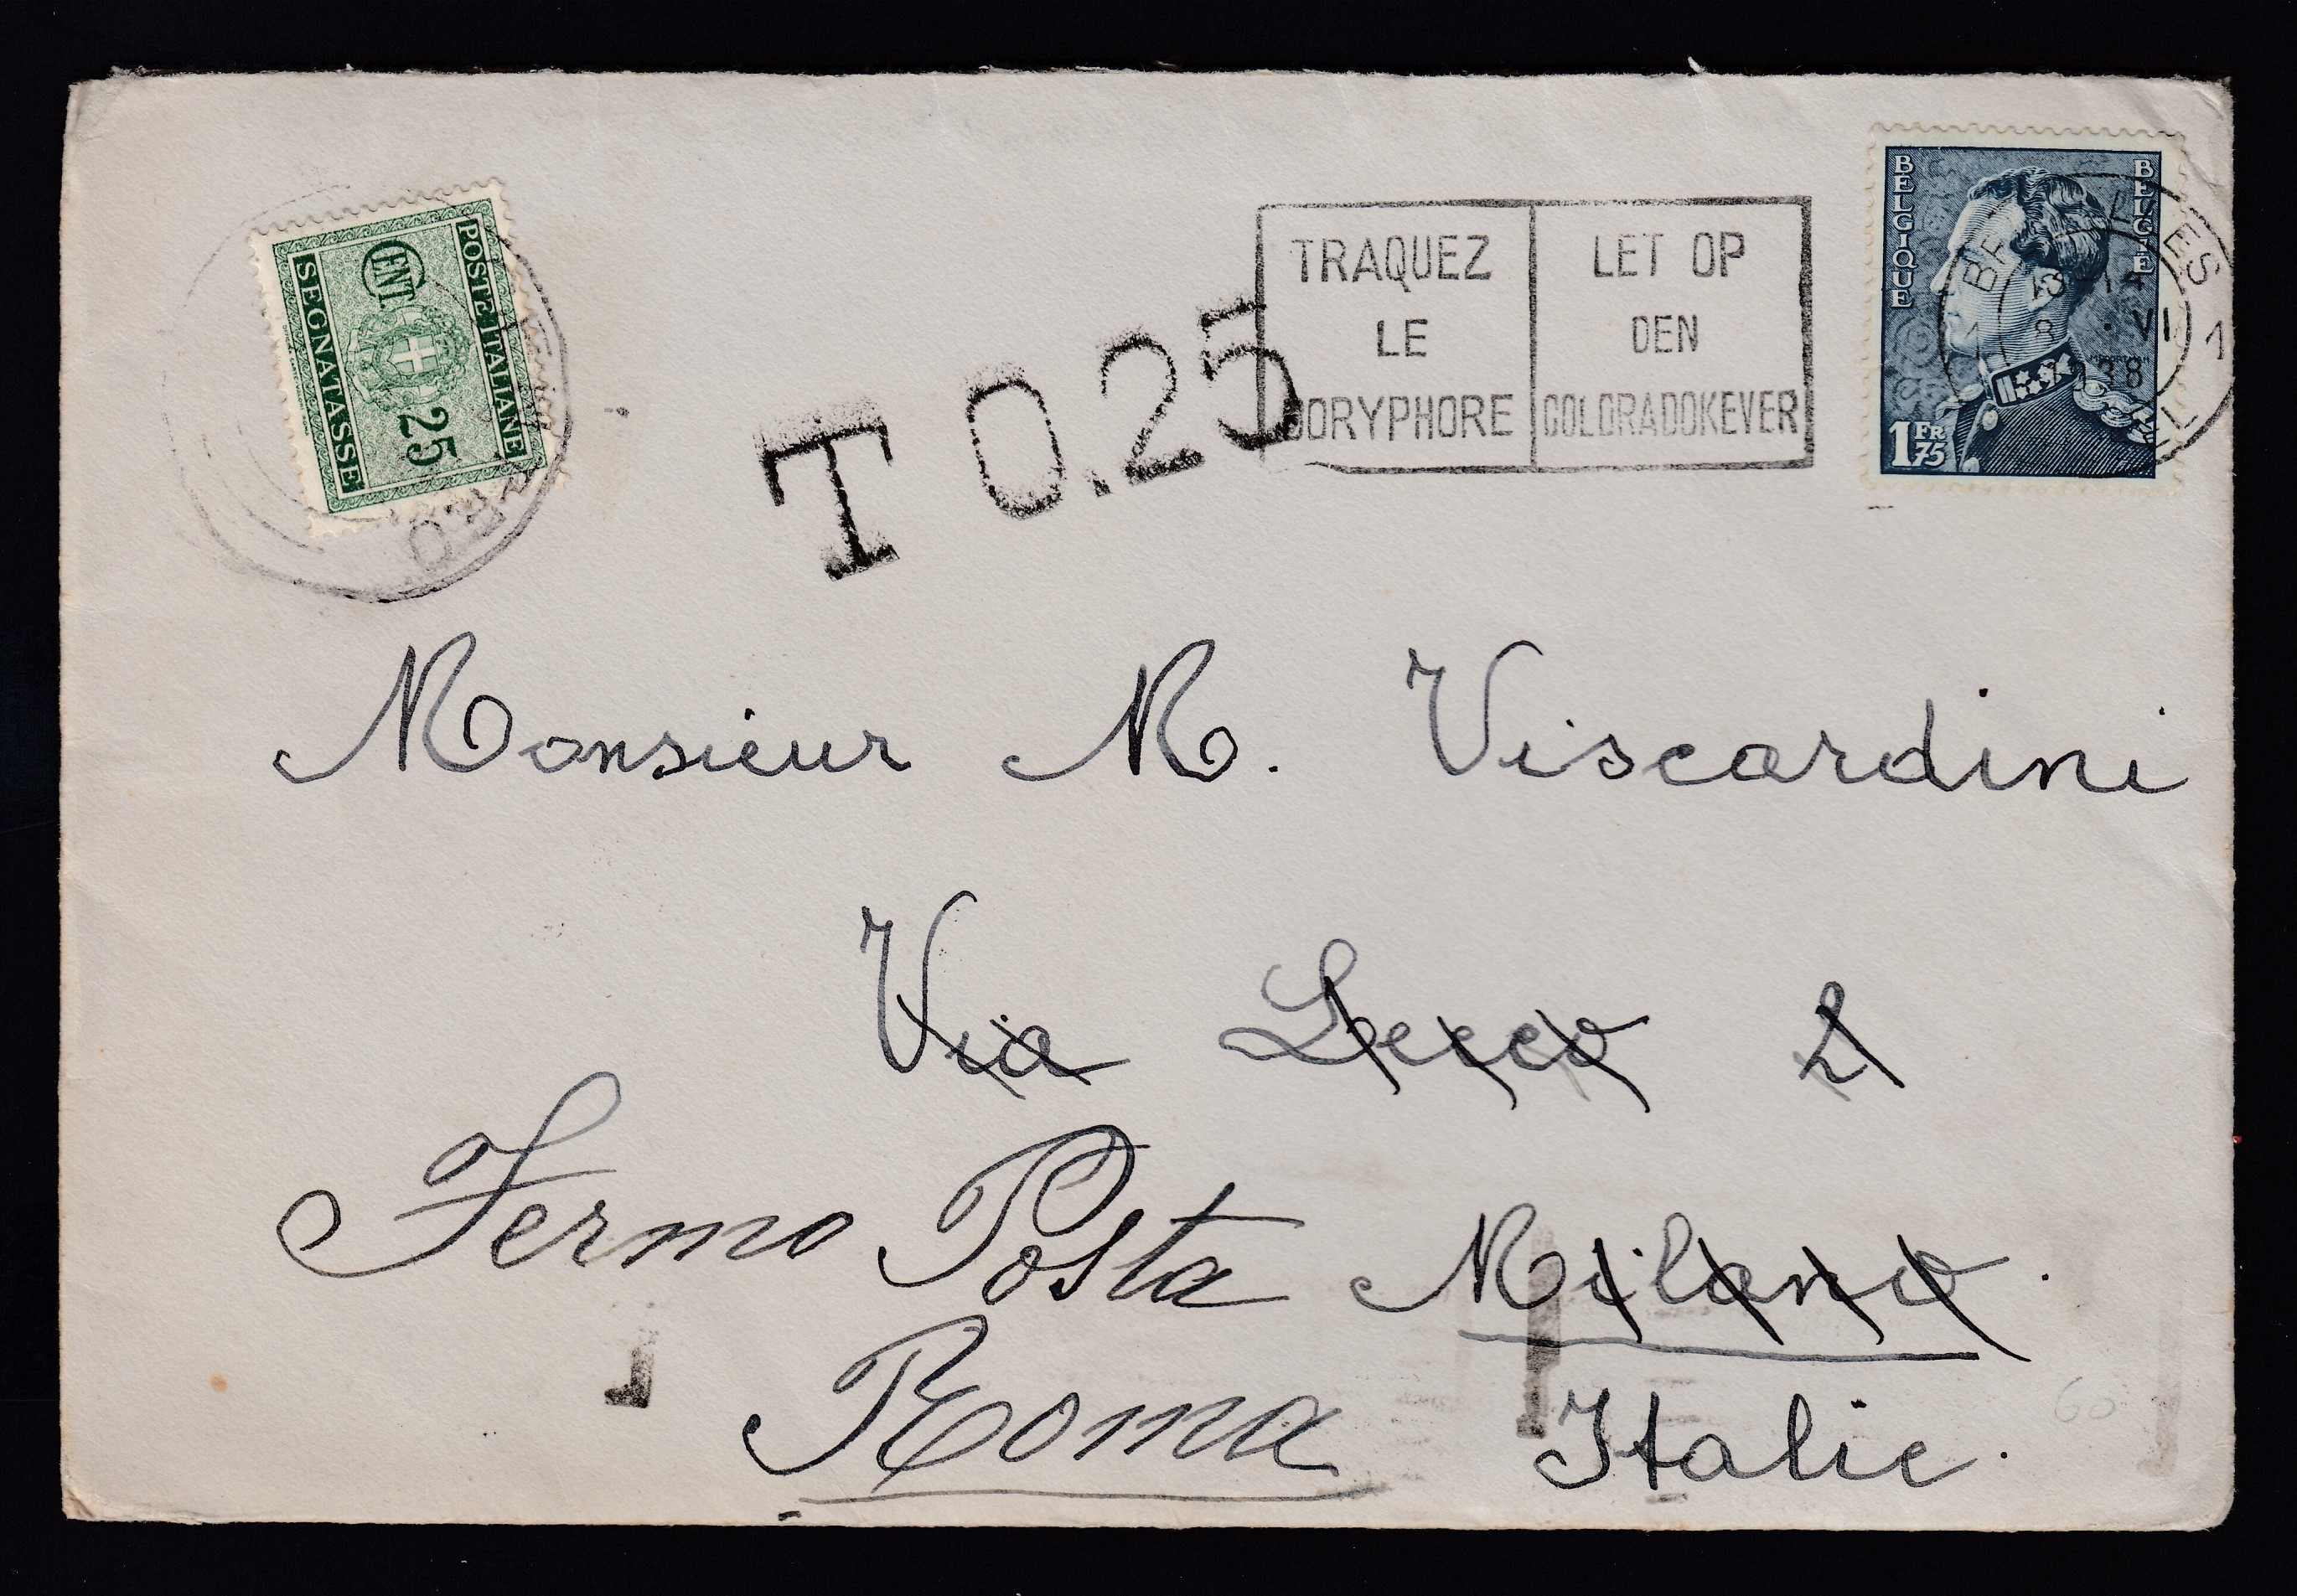 POSTE ITALIANE
CENT 25
SEGNATASSE
T 0.25
TRAQUEZ
LE
DORYPHORE
LET OP
DEN
COLORADOKEVER
BELGIQUE
BELGIË
1 FR 75
1 1
13-14
8 · VI
1938
Monsieur M. Viscardini
Via Lecco 2
Fermo Posta Milano.
Roma Italie.
60